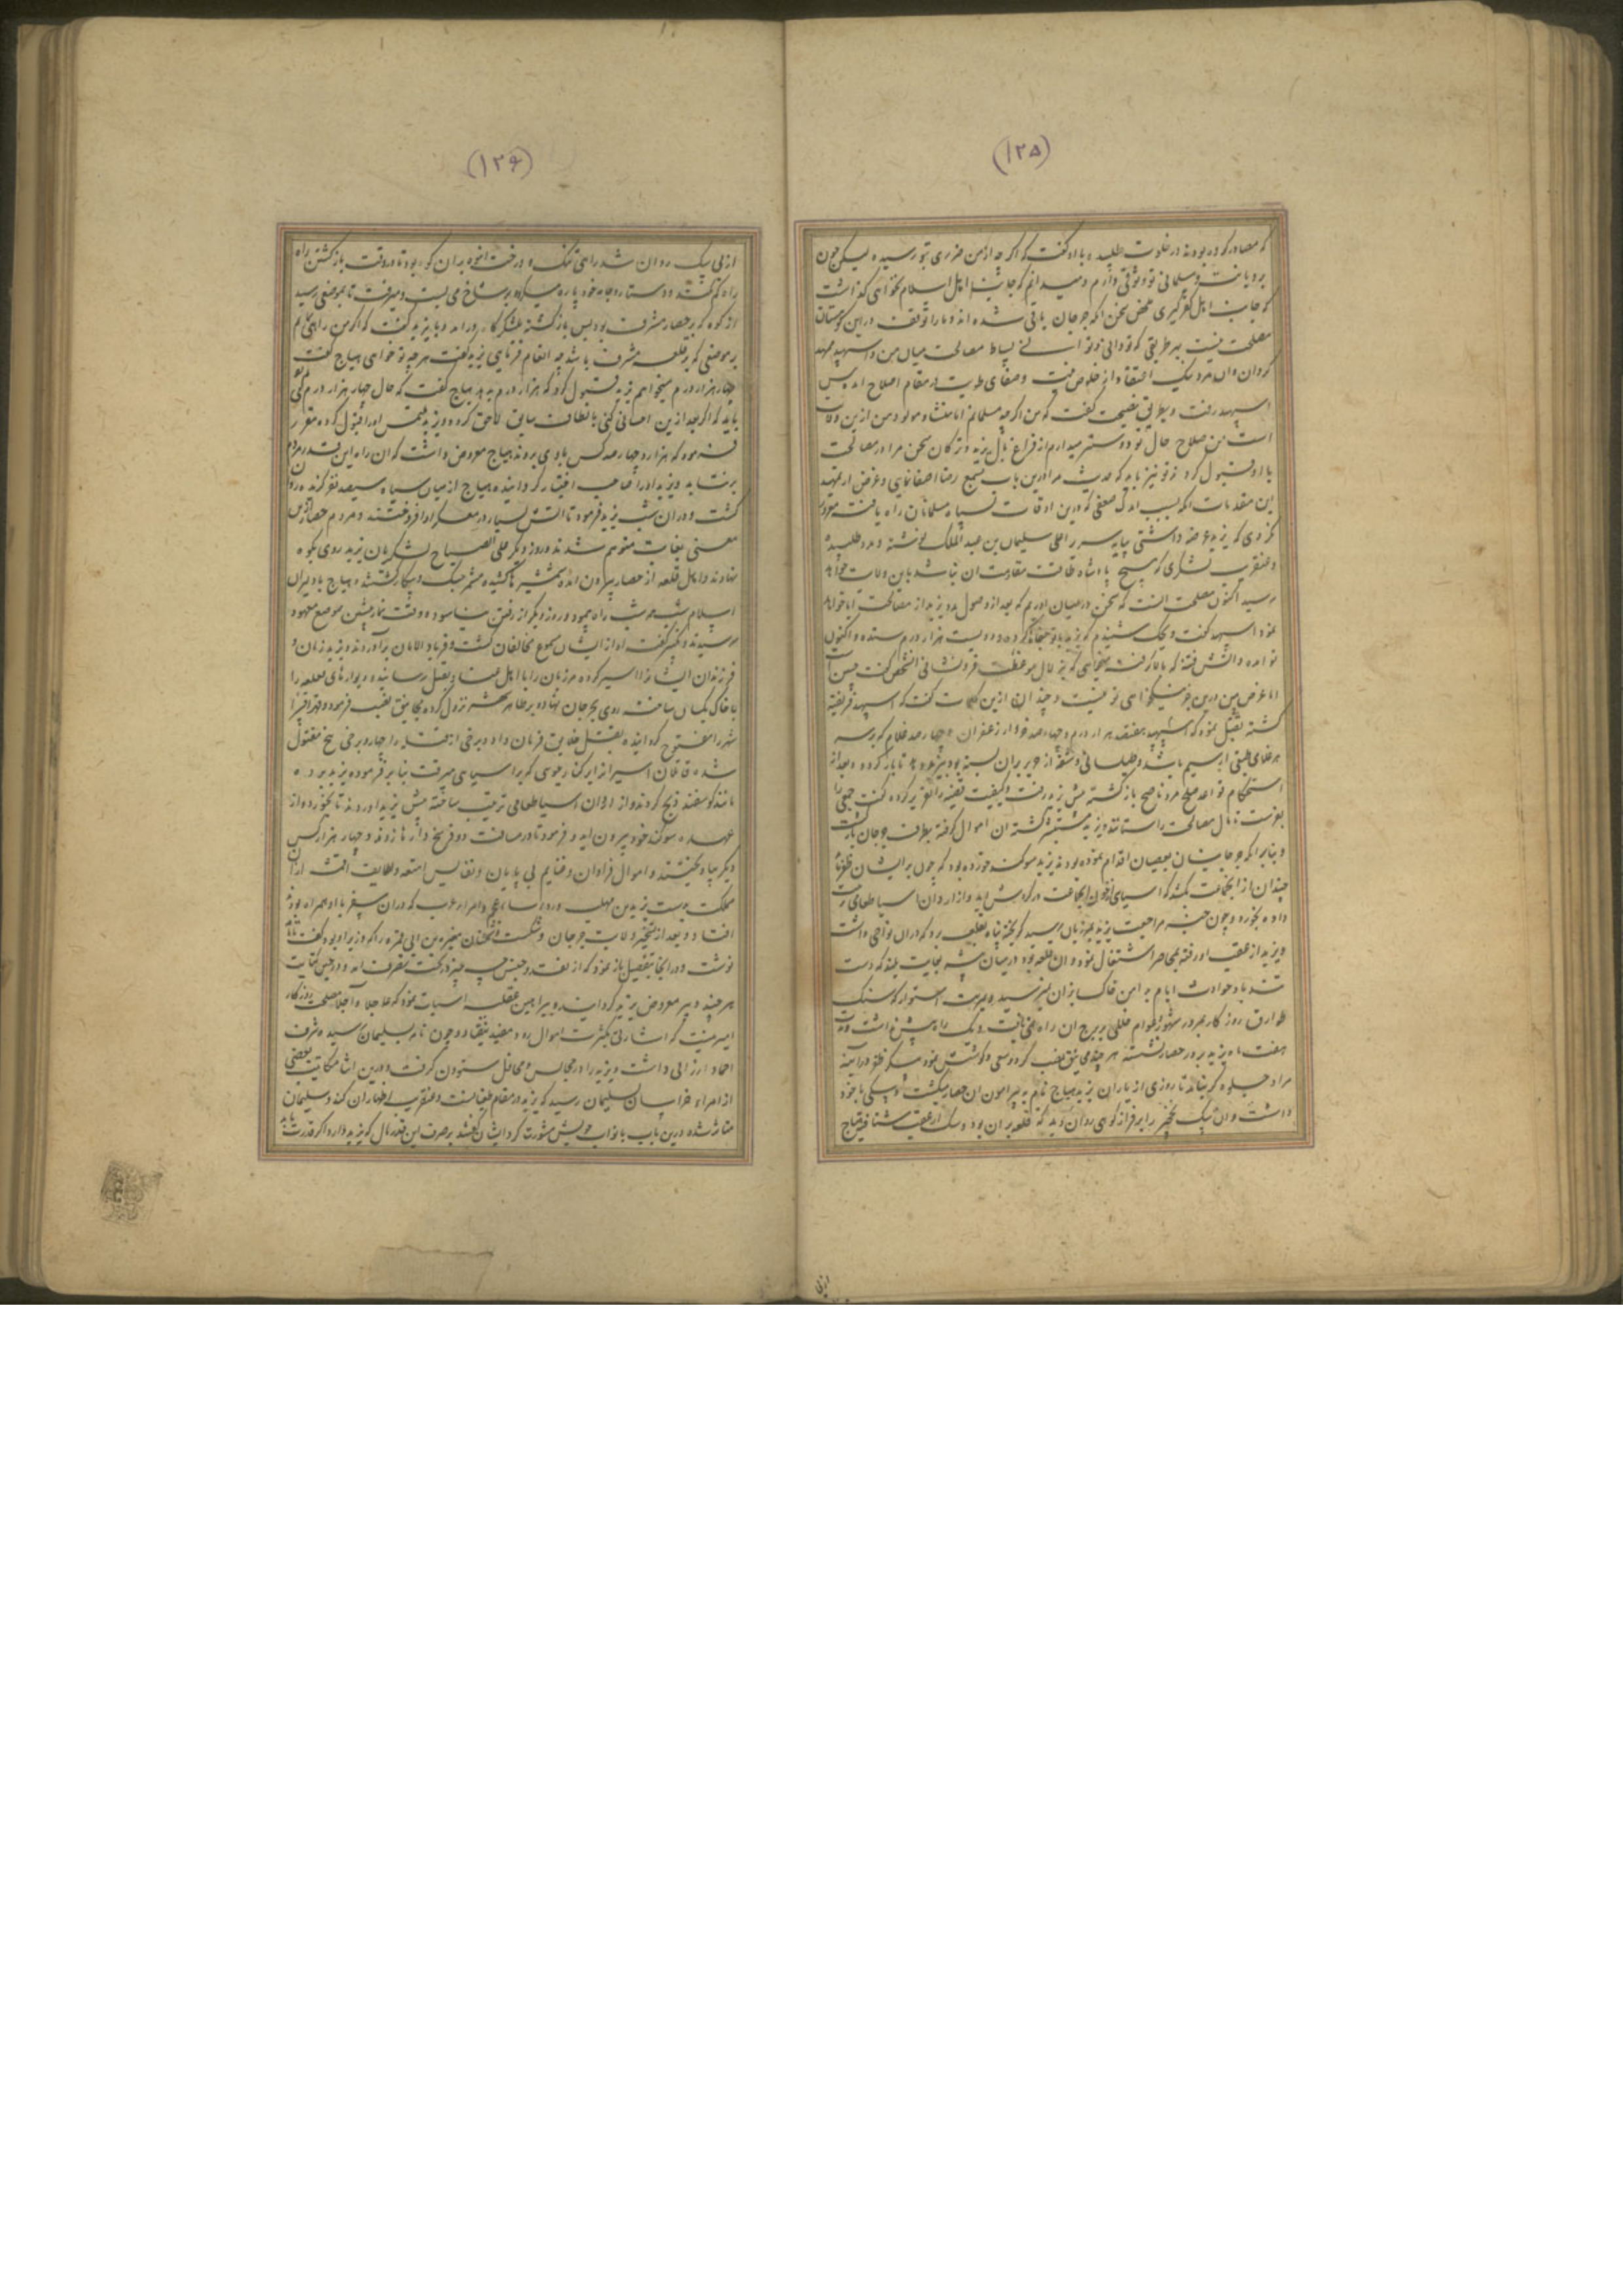 (۱۲۵)
که مصادر کرده بودند در خلوت طلبیده با او گفت که اگر چه از من ضرری بتو رسیده لیکن چون
بر دیانت و مسلمانی تو وثوقی دارم و میدانم که جانب اهل اسلام نخواهی گذاشت
که جانب اهل کفر گیری محض سخن آنکه جرجان یاغی شده اند و ما را توقف در این کوهستان
مصلحت نیست بهر طریقی که تو دانی و توانی بساط مصالحت میان من و اسپهبد ممهد
گردان و آن مرد نیک اعتقاد از خلوص نیت و صفای طویت در مقام اصلاح آمد پس
اسپهبد رفت و بطریق نصیحت گفت که من اگر چه مسلمانم اما منشأ و مولود من ازین ولایت
است من صلاح حال تو دوستر میدارم از فراغ بال یزید و ترکان سخن مرا در مصالحت
با او قبول کرد و تو نیز باید که حدیث مرا درین باب بسمع رضا اصغا نمایی و غرض از تمهید
این مقدمات آنکه بسبب اندک ضعفی که درین اوقات بسپاه مسلمانان راه یافت مغرور
نگردی که یزید عرضه داشتی بپایه سریر اعلی سلیمان بن عبد الملک نوشته و مدد طلبیده
و عنقریب لشکری که هیچ پادشاه طاقت مقاومت آن نباشد باین ولایت خواهد
رسید اکنون مصلحت آنست که سخن در میان آوریم که بعد از وصول مدد یزید از مصالحت ابا خواهد
نمود اسپهبد گفت
تو آمده و آتش فتنه که بالا گرفته میخواهی که بزلال موعظت فرونشانی آن شخص گفت
اما غرض من درین جز نیکخواهی تو نیست و چندان ازین کلمات گفت که اسپهبد فریفته
گشته تقبل نمود که اسپهبد هفتصد هزار درم و چهارصد خروار زعفران و چهارصد غلام که بر سر
هر غلامی طبقی از سیم باشد و طیلسانی و شقه از حریر بران بسته بود بیزید دهد تا باز گردد و بعد از
استحکام قواعد صلح مرد ناصح باز گشته پیش یزید رفت و کیفیت قضیه را تقریر کرده گفت جمعی را
بفرست تا مال مصالحت را ستانند و یزید مستبشر گشته آن اموال گرفته بطرف جرجان بازگشت
و بنابر آنکه جرجانیان بعصیان اقدام نموده بودند یزید سوگند خورده بود که چون بر ایشان ظفر یابد
چندان از آن جماعت بکشد که آسیای از خون آن جماعت در گردش آید و از آرد آن آسیا طعامی
داده بخورد و چون خبر مراجعت یزید بمرزبان رسید گریخته پناه بقلعه برد که دران نواحی داشت
و یزید از عقب او رفته بمحاصره اشتغال نمود و آن قلعه بود در میان بیشه بغایت بلند که دست
تند باد حوادث ایام بدامن خاکساران نمیرسید
طوارق روزگار بمرور شهور و اعوام خللی ببرج آن راه نمی یافت و یک راه بیش نداشت
هفت ماه یزید بر در حصار نشسته هر چند منجنیق نصب کرد و سعی و کوشش نمود شکر ظفر در آینه
مراد جلوه گر نیامد تا روزی از یاران یزید هیاج نام به پیرامون آن حصار میگشت و سگی با خود
داشت و آن سگ نخجیر را بر فراز کوهی روان دید که قلعه بران بود و سگ از عقب شتافت هیاج
از پی
(۱۲۶)
از پی سگ روان شد راهی تنگ و درخت انبوه بران کوه بود تا در وقت بازگشتن راه
راه گم نکند دستار و جامه خود پاره میکرد و بر شاخ می بست و میرفت تا بموضعی رسید
از کوه که بر حصار مشرف بود پس بازگشته بلشکرگاه درآمد و با یزید گفت که اگر من راهی نمایم
بر موضعی که بر قلعه مشرف باشد چه انعام فرمایی یزید گفت هر چه تو خواهی هیاج گفت
چهار هزار درم میخواهم یزید قبول کرد که هزار درم بدهد هیاج گفت که حال چهار هزار درم
باید که اگر بعد ازین احسانی کنی بالطاف سابق لاحق گردد و یزید ملتمس او را قبول کرده مقرر
فرمود که هزار و چهارصد کس با وی بروند هیاج معروض داشت که آن راه این قدر مردم
برنتابد و یزید او را صاحب اختیار گردانیده هیاج از میان سپاه سیصد نفر گزیده روان
گشت و دران شب یزید فرمود تا آتش بسیار در معسکر او افروختند و مردم حصار ازین
معنی بغایت متوهم شدند و روز دیگر علی الصباح لشکریان یزید روی بکوه
نهادند و اهل قلعه از حصار بیرون آمده شمشیرها کشیده متوجه جنگ و پیکار گشتند و هیاج با دلیران
اسلام شب همه شب راه پیمود و روز دیگر از رفتن نیاسود و وقت نماز پیشین بموضع معهود
رسیدند و تکبیر گفته آواز ایشان بسمع مخالفان گشت و فریاد الامان برآوردند و یزید زنان و
فرزندان ایشان را اسیر کرده مرزبان را با اهل بقتل رسانیده و دیوارهای قلعه را
با خاک یکسان ساخته روی بجرجان نهاد و بر ظاهر شهر نزول کرده منجنیق نصب فرمود و قهرا قسرا
شهر را مفتوح گردانیده بقتل خلایق فرمان داد و برخی از قلعه را چهار و برخی پنج مقتول
شده قاتلان اسیرانرا بر کنار جوی که بر آسیای میرفت بنا بر فرموده یزید برده
مانند گوسفند ذبح کردند و از آرد آن آسیا طعامی ترتیب ساخته پیش یزید آوردند تا بخورد و از
عهده سوگند خود بیرون آید و فرمود تا در مسافت دو فرسخ دارها زدند و چهار هزار کس
دیگر بیاویختند و اموال فراوان و غنایم بی پایان و نفایس امتعه و ظرایف اقمشه از آن
مملکت بدست یزید بن مهلب و رؤساء عجم و امراء عرب که دران سفر با او همراه بودند
افتاد و بعد از تسخیر ولایت جرجان و شکست و مغیره بن ابی قره را که دبیر او بود گفت نامه
نوشت و در آنجا بتفصیل باز نمود که از نقد و جنس چه چیز در تحت تصرف آمد و درحین کتابت
هر چند دبیر معروض یزید گردانید و ببراهین عقلیه اثبات نمود که عاجلا و آجلا مصلحت روزگار
امیر نیست که اشارتی بکثرت اموال رود مفید نیفتاد و چون نامه بسلیمان رسید زبان
احماد ارزانی داشت و یزید را در مجالس و محافل ستودن گرفت و درین اثنا مکاتیب بعضی
از امراء خراسان بسلیمان رسید که یزید در مقام طغیانست و عنقریب اظهار آن کند و سلیمان
متأثر شده درین باب با نواب خویش مشورت کرد ایشان گفتند بصرف این قدر مال که یزید دارد اگر قدرت یابد